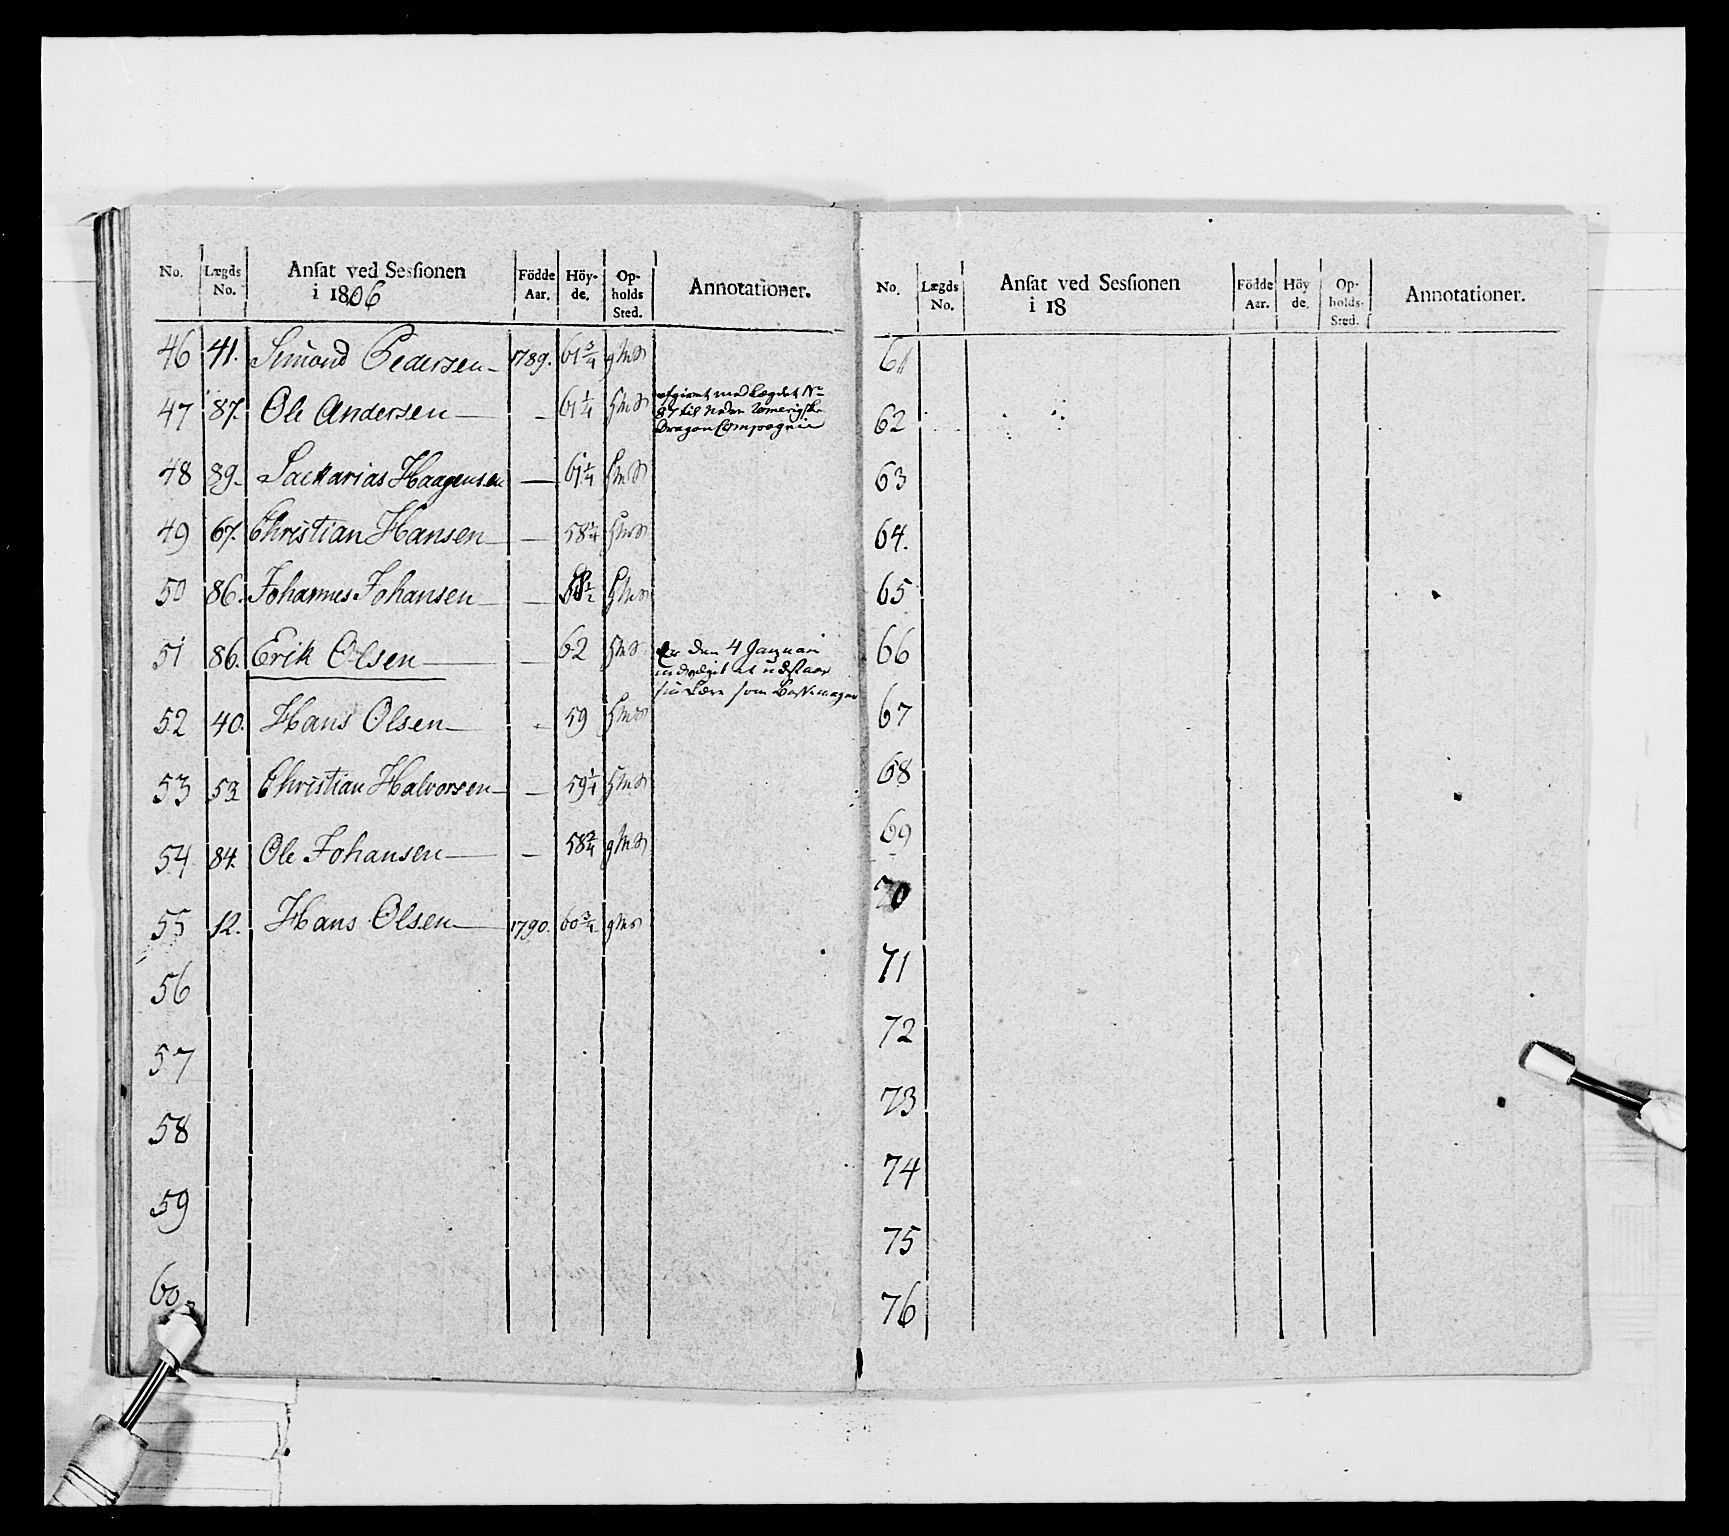 No. Lægds No. Ansat ved Sessionen i 1806 Födde Aar. Höy-de. Op-holds Sted. Annotationer.
46 41. Simond Pedersen 1789. 61 3/4
47 87. Ole Andersen — 61 1/4 afgivet med Lægdet No
87 til Neder Romerigske
Dragon Compagnie
48 89 Sackarias Haagensen — 61 1/4
49 67. Christian Hansen — 58 1/4
50 86. Johannes Johansen —
51 86. Erik Olsen — 62 Er den 4 Januari
at udstaae
sin Lære som
52 40. Hans Olsen — 59
53 Christian Halvorsen — 59 1/4
54 84. Ole Johansen — 58 2/4
55 12. Hans Olsen 1790. 60 3/4
56
57
58
59
60
No. Lægds No. Ansat ved Sessionen i 18 Födde Aar. Höy de. Op-holds-Sted. Annotationer.
61
62
63
64.
65
66
67
68
69
70
71
72
73
74
75
76